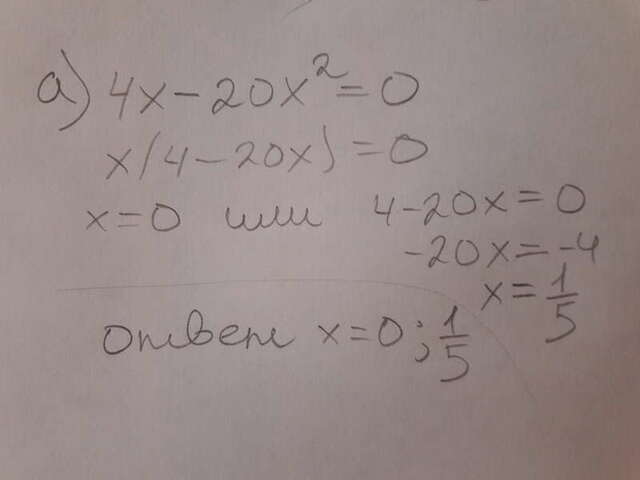 а) 4x-20x²=0
x(4-20x)=0
x=0 или 4-20x=0
-20x=-4
x=1/5
ответ x=0; 1/5